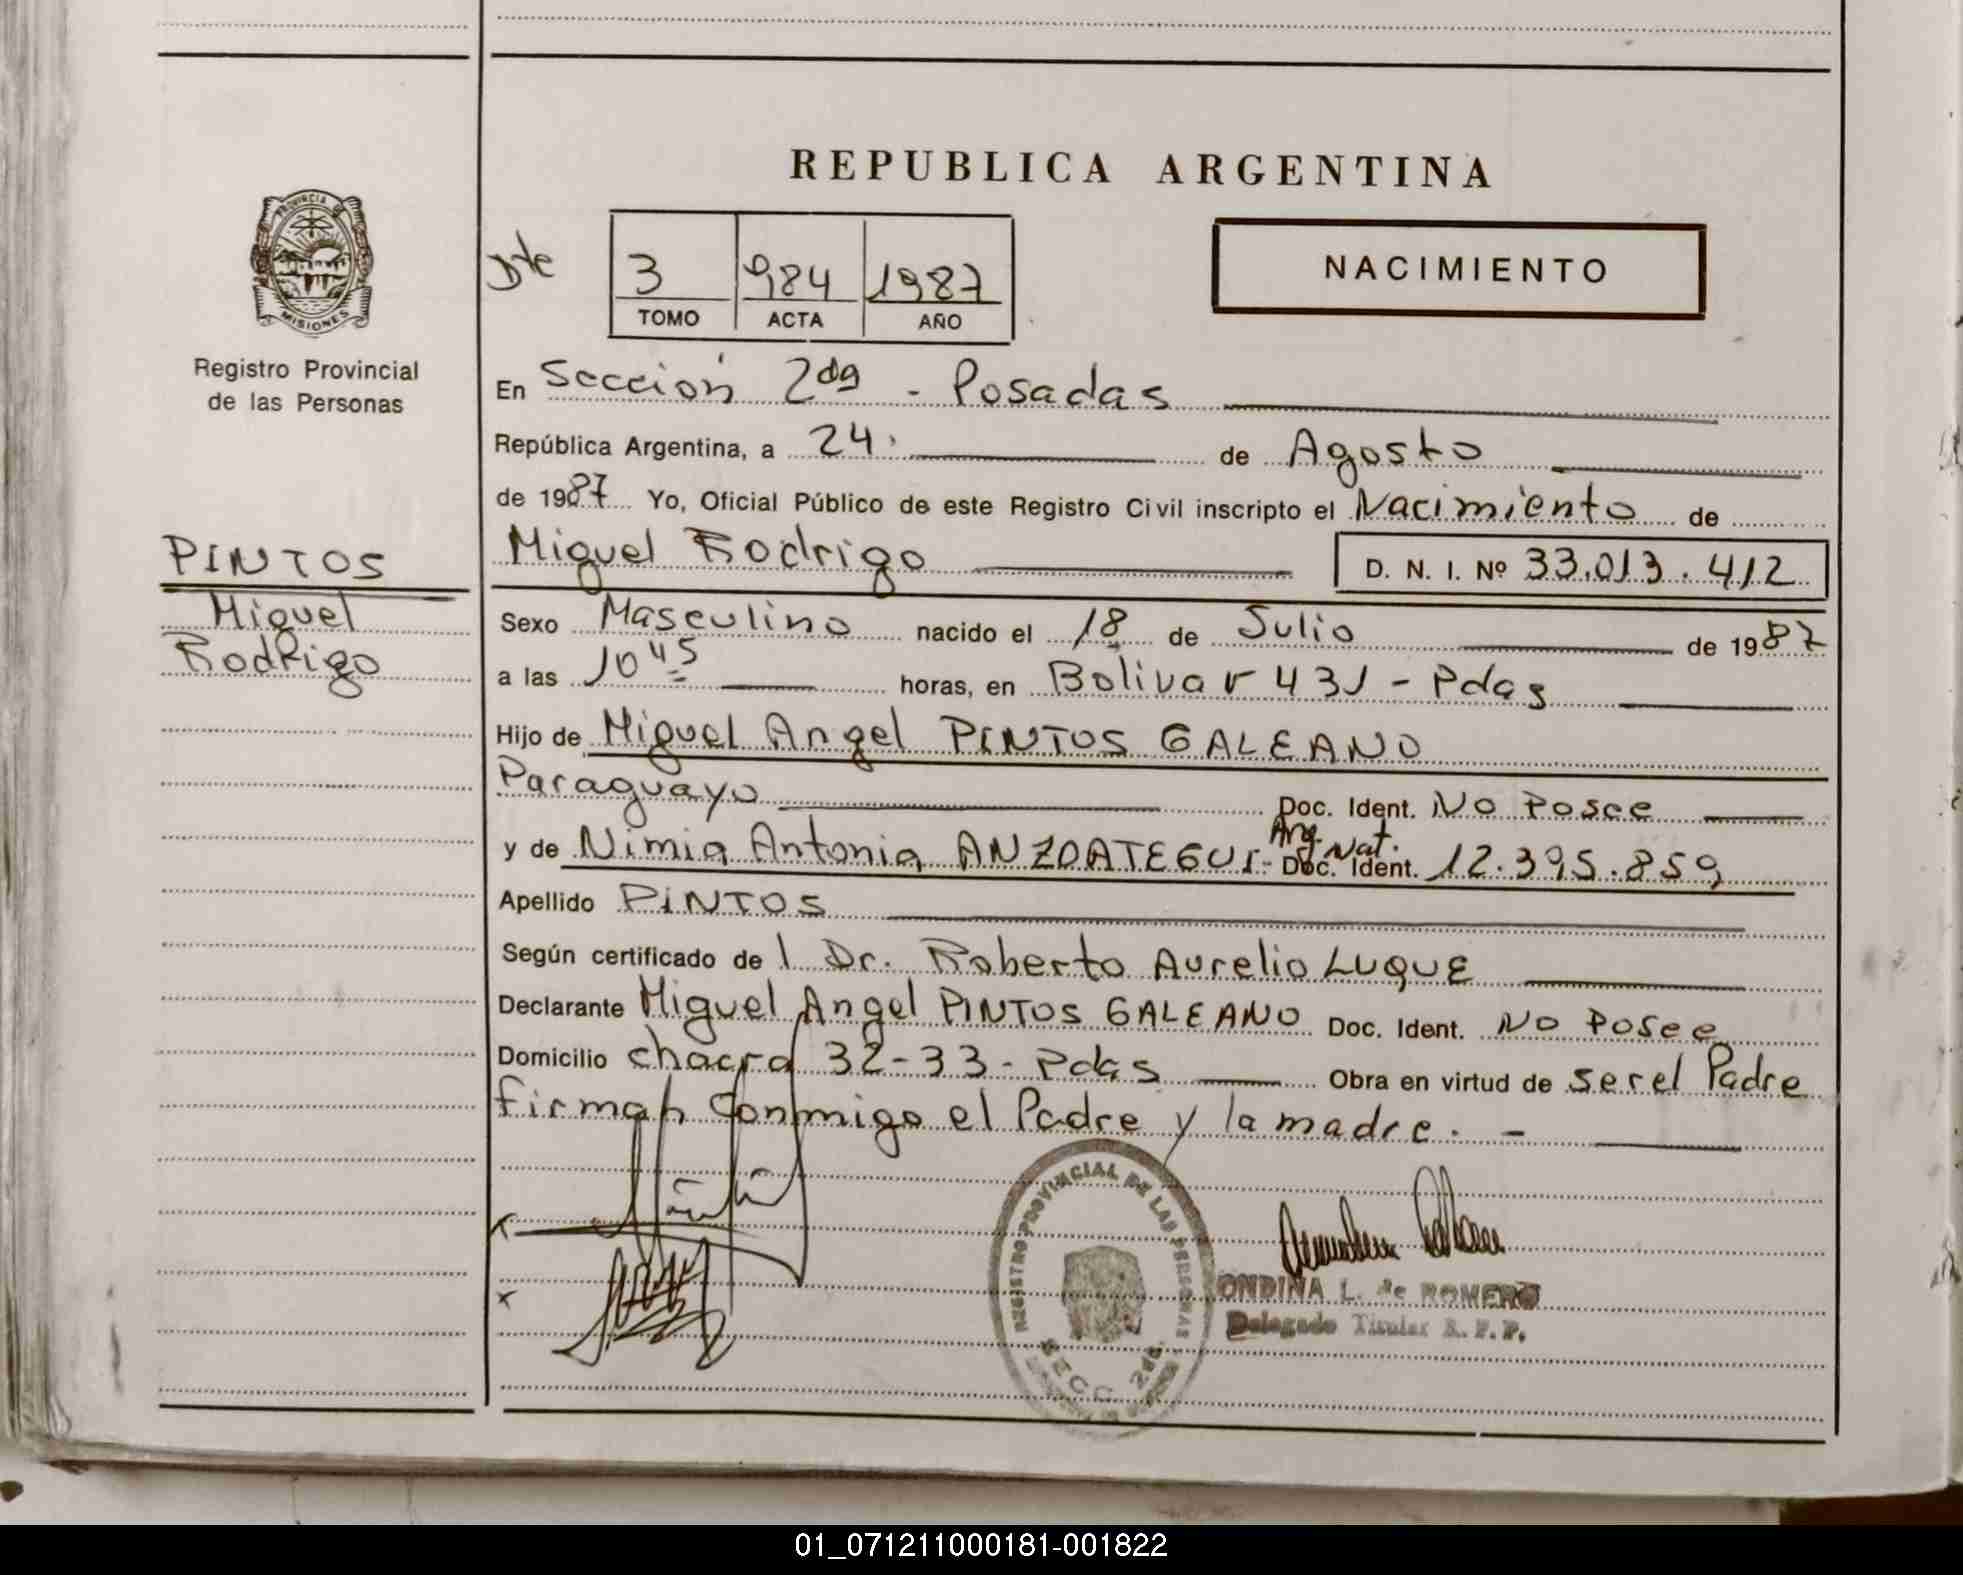 REPUBLICA ARGENTINA
PROVINCIA DE
MISIONES
Registro Provincial
de las Personas
Dte
3 984 1987
TOMO ACTA AÑO
NACIMIENTO
En Sección 2da - Posadas
República Argentina, a 24 de Agosto
de 1987 Yo, Oficial Público de este Registro Civil inscripto el Nacimiento de
PINTOS
Miguel
Rodrigo
Miguel Rodrigo D. N. I. Nº 33.013.412
Sexo Masculino nacido el 18 de Julio de 1987
a las 10 45 horas, en Bolivar 431 - Pdas
Hijo de Miguel Angel PINTOS GALEANO
Paraguayo Doc. Ident. No Posee
y de Nimia Antonia ANZOATEGUI - Arg. Nat. Doc. Ident. 12.395.859
Apellido PINTOS
Según certificado de l Dr. Roberto Aurelio LUQUE
Declarante Miguel Angel PINTOS GALEANO Doc. Ident. No Posee
Domicilio chacra 32-33 - Pdas Obra en virtud de ser el Padre
firman conmigo el Padre y la madre. -
REGISTRO PROVINCIAL DE LAS PERSONAS
SECC. 2da.
ONDINA L. de ROMERO
Delegado Titular R. P. P.
01_071211000181-001822